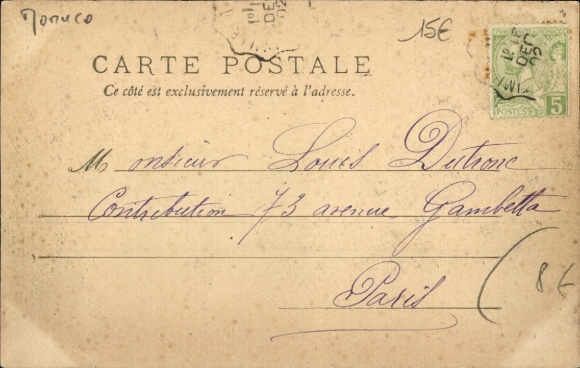 Monaco
15€
1º
DEC
02
POSTES
5
CARTE POSTALE
Ce côté est exclusivement réservé à l'adresse.
Monsieur Louis Dutronc
Contribution 73 avenue Gambetta
Paris
8€